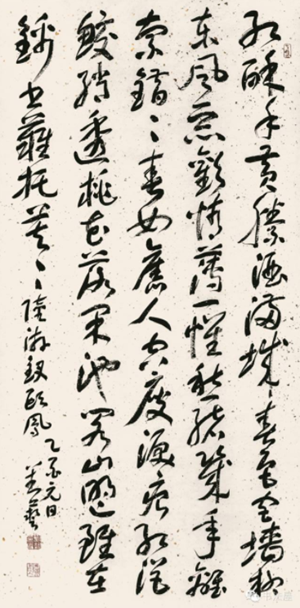 紅酥手黃縢酒滿城春色宮墻柳
東風惡歡情薄一懷愁緒幾年離
索錯〻〻春如舊人空瘦淚痕紅浥
鮫綃透桃花落閑池閣山盟雖在
錦書難托莫〻〻陸游釵頭鳳
乙亥元日